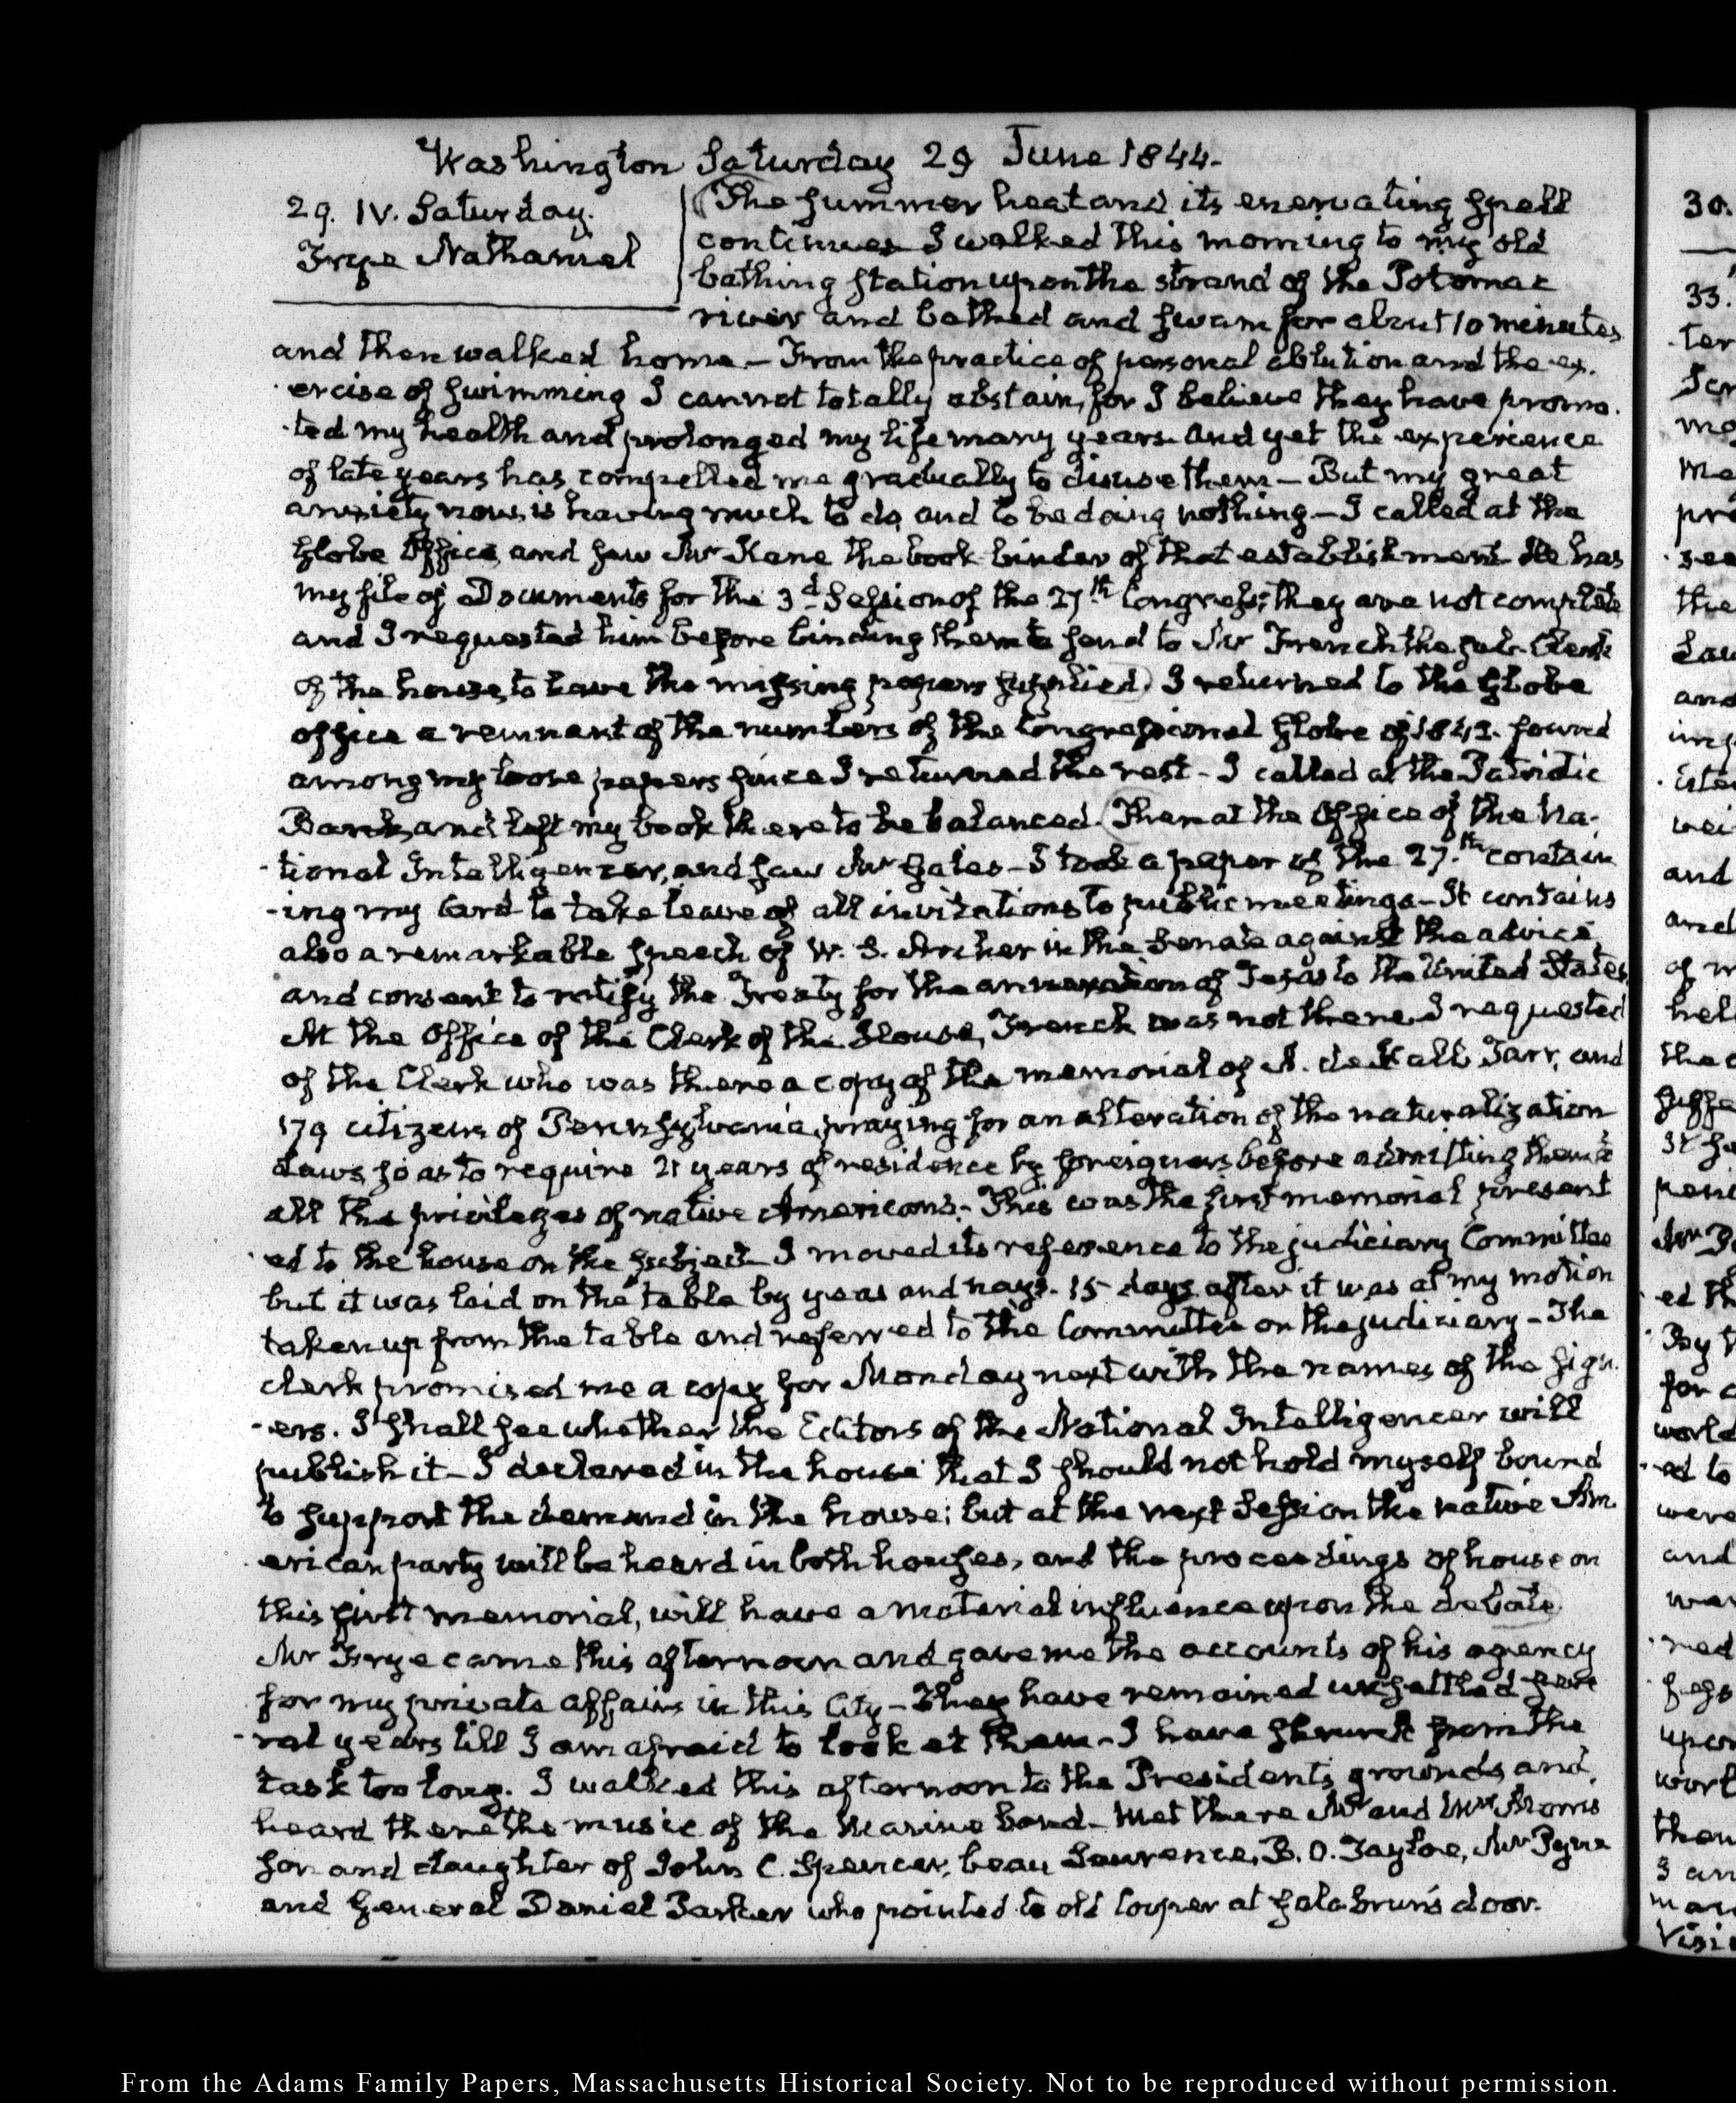 Washington Saturday 29 June 1844.
29. IV. Saturday.
Frye Nathaniel
The summer heat and its enervating spell
continues I walked this morning to my old
bathing station upon the strand of the Potomac
river and bathed and swam for about 10 minutes
and then walked home — From the practice of personal ablution and the ex-
ercise of swimming I cannot totally abstain, for I believe they have promo-
-ted my health and prolonged my life many years. and yet the experience
of late years has compelled me gradually to disuse them — But my great
anxiety now, is having much to do, and to be doing nothing — I called at the
Globe Office, and saw Mr Kane the book-binder of that establishment He has
my file of Documents for the 3d Session of the 27th Congress; they are not complete
and I requested him before binding them to send to Mr French the Clerk
of the house, to have the missing papers supplied) I returned to the Globe
office a remnant of the numbers of the Congressional Globe of 1842. found
among my loose papers since I returned the rest - I called at the Patriotic
Bank, and left my book there to be balanced. Then at the Office of the Na-
-tional Intelligencer, and saw Mr Gales — I took a paper of the 27.th contain
-ing my Card to take leave of all invitations to public meetings — It contains
also a remarkable speech of W. S. Archer in the Senate against the advice
and consent to ratify the Treaty for the annexation of Texas to the United States
At the Office of the Clerk of the House, French was not there. I requested
of the Clerk who was there a copy of the memorial of A. de Kalb Tarr, and
179 citizens of Pennsylvania, praying for an alteration of the naturalization
Laws, so as to require 21 years of residence by foreigners before admitting them to
all the privileges of native Americans. — This was the first memorial present
-ed to the house on the subject — I moved its reference to the judiciary Committee
but it was laid on the table by yeas and nays. 15 days after it was at my motion
taken up from the table and referred to the Committee on the judiciary — The
clerk promised me a copy for Monday next with the names of the sign-
-ers. I shall see whether the Editors of the National Intelligencer will
publish it — I declared in the house that I should not hold myself bound
to support the demand in the house; but at the next Session the native Am-
-erican party will be heard in both houses, and the proceedings of house on
this first memorial, will have a material influence upon the debate.
Mr Frye came this afternoon and gave me the accounts of his agency
for my private affairs in this City — They have remained unsettled seve
-ral years till I am afraid to look at them — I have shrunk from the
task too long. I walked this afternoon to the Presidents grounds and
heard there the music of the Marine band — Met there Mr and Mrs Morris
son and daughter of John C. Spencer, beau Laurence, B. O. Tayloe, Mr
and General Daniel Parker who pointed to old Cooper at Galabrun's door.
30.
33.
From the Adams Family Papers, Massachusetts Historical Society. Not to be reproduced without permission.